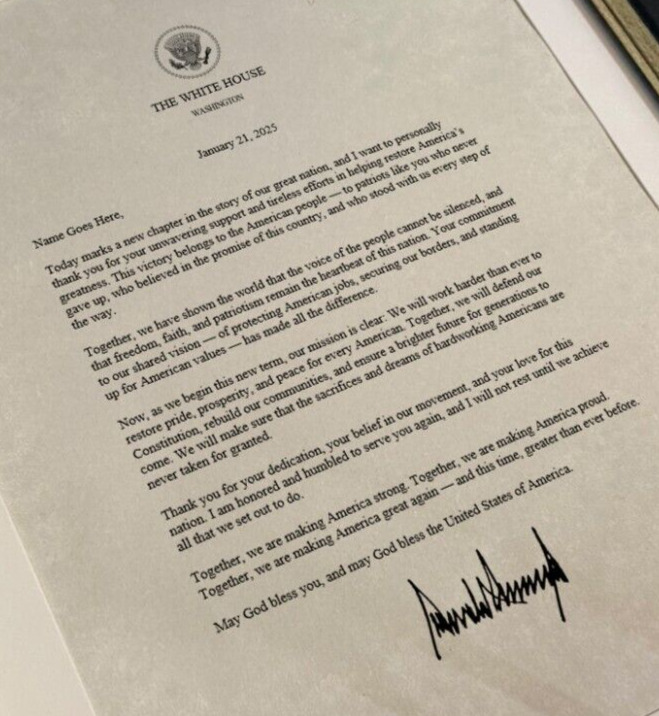 THE WHITE HOUSE
WASHINGTON
January 21, 2025
Name Goes Here,
Today marks a new chapter in the story of our great nation, and I want to personally
thank you for your unwavering support and tireless efforts in helping restore America's
greatness. This victory belongs to the American people — to patriots like you who never
gave up, who believed in the promise of this country, and who stood with us every step of
the way.
Together, we have shown the world that the voice of the people cannot be silenced, and
that freedom, faith, and patriotism remain the heartbeat of this nation. Your commitment
to our shared vision — of protecting American jobs, securing our borders, and standing
up for American values — has made all the difference.
Now, as we begin this new term, our mission is clear: We will work harder than ever to
restore pride, prosperity, and peace for every American. Together, we will defend our
Constitution, rebuild our communities, and ensure a brighter future for generations to
come. We will make sure that the sacrifices and dreams of hardworking Americans are
never taken for granted.
Thank you for your dedication, your belief in our movement, and your love for this
nation. I am honored and humbled to serve you again, and I will not rest until we achieve
all that we set out to do.
Together, we are making America strong. Together, we are making America proud.
Together, we are making America great again — and this time, greater than ever before.
May God bless you, and may God bless the United States of America.